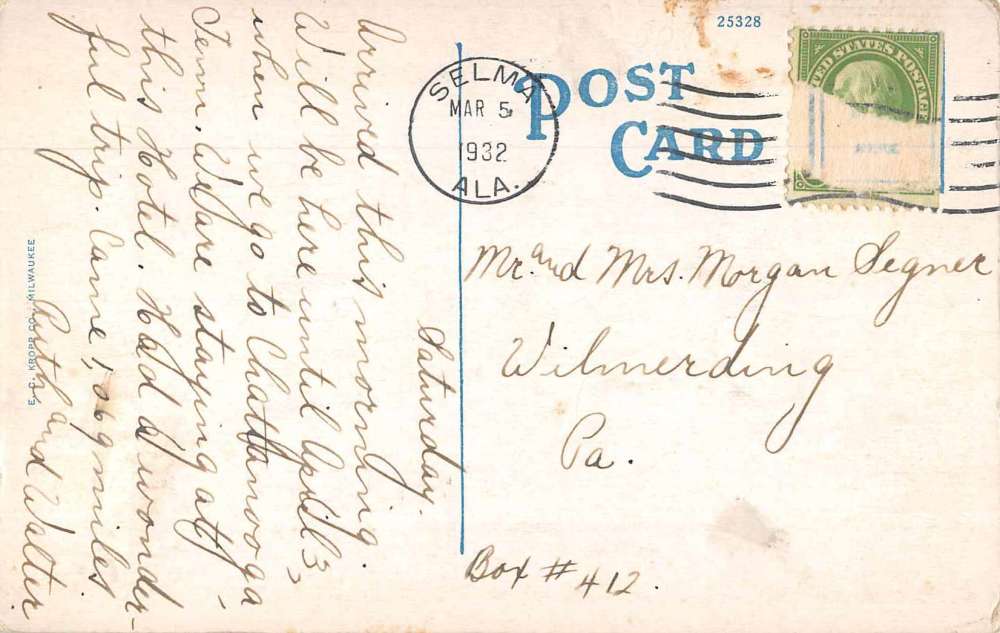 25328
POST
CARD
SELMA
MAR 5
1932
ALA.
UNITED STATES POSTAGE
Saturday.
Arrived this morning.
Will be here until April 3,
when we go to Chattanooga
Tenn. We are staying at
this Hotel. Had a wonder-
ful trip. Came 1,069 miles
Ruth and Walter.
Mr. and Mrs. Morgan Segner
Wilmerding
Pa.
Box # 412.
E. C. KROPP CO., MILWAUKEE